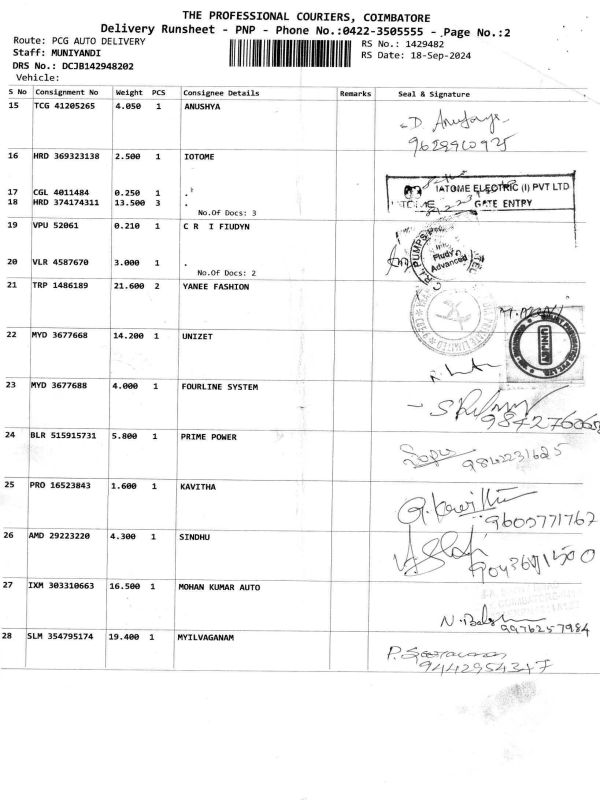 THE PROFESSIONAL COURIERS, COIMBATORE
Delivery Runsheet - PNP - Phone No.:0422-3505555 - Page No.:2
Route: PCG AUTO DELIVERY
RS No.: 1429482
Staff: MUNIYANDI
RS Date: 18-Sep-2024
DRS No.: DCJB142948202
Vehicle:
S No Consignment No Weight PCS Consignee Details Remarks Seal & Signature
15 TCG 41205265 4.050 1 ANUSHYA
D.
16 HRD 369323138 2.500 1 IOTOME
17 CGL 4011484 0.250 1 .
IATOME ELECTRIC (I) PVT LTD
18 HRD 374174311 13.500 3 .
GATE ENTRY
No.Of Docs: 3
19 VPU 52061 0.210 1 C R I FIUDYN
C.R.I. PUMPS
Fludyn
Advanced
20 VLR 4587670 3.000 1 .
No.Of Docs: 2
21 TRP 1486189 21.600 2 YANEE FASHION
M. MANI
22 MYD 3677668 14.200 1 UNIZET
23 MYD 3677688 4.000 1 FOURLINE SYSTEM
24 BLR 515915731 5.800 1 PRIME POWER
9842231625
25 PRO 16523843 1.600 1 KAVITHA
9600771767
26 AMD 29223220 4.300 1 SINDHU
27 IXM 303310663 16.500 1 MOHAN KUMAR AUTO
9976257984
28 SLM 354795174 19.400 1 MYILVAGANAM